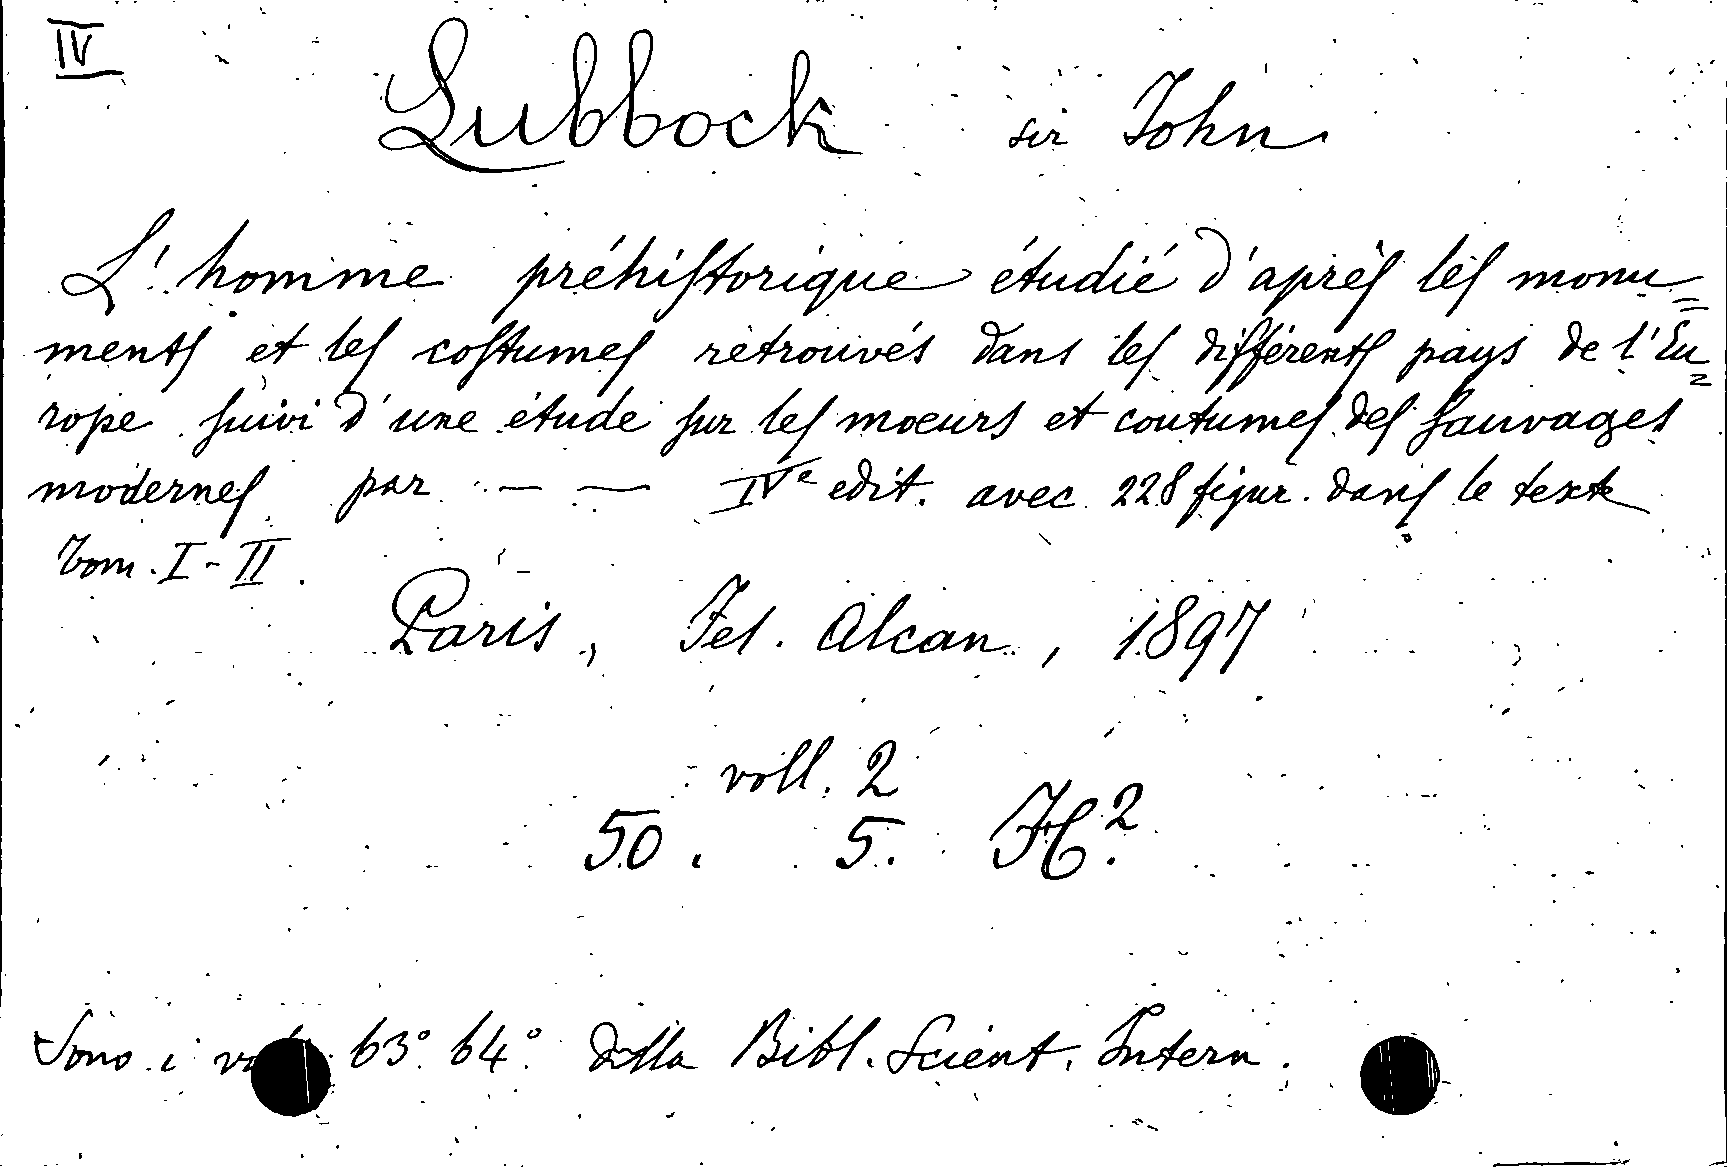 IV
Lubbock sir John
L'homme préhistorique étudié d'après les monu=
ments et les costumes retrouvés dans les différents pays de l'Eu=
rope suivi d'une étude sur les moeurs et coutumes des sauvages
modernes par — — IVe edit. avec 228 figur. dans le texte
Tom. I-II.
Paris, Fel. Alcan, 1897
voll. 2
50. 5. H.2
Sono i 63° 64° della Bibl. Scient. Intern.